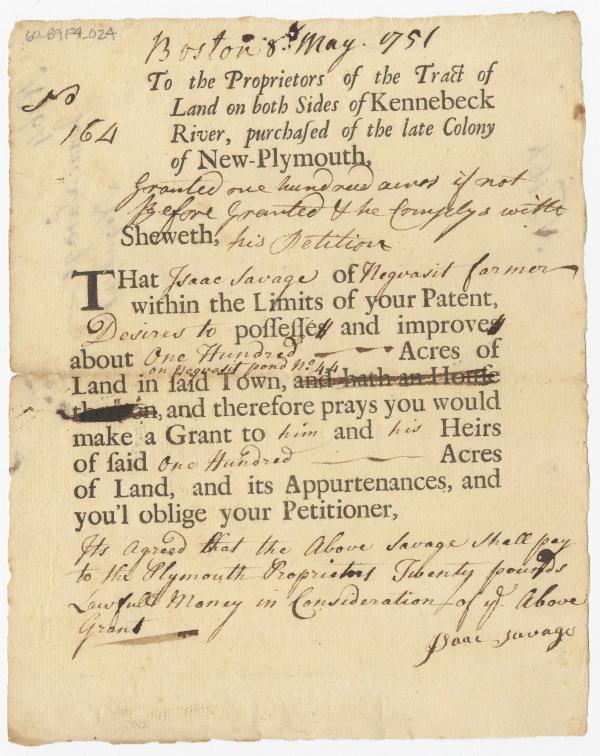 60-B9F4_024
Boston 8th May. 1751
To the Proprietors of the Tract of
No
Land on both Sides of Kennebeck
164
River, purchaſed of the late Colony
of New-Plymouth,
Granted one hundred acres if not
Before Granted & he Complys with
Sheweth, his Petition
THat Isaac Savage of Negvasit farmer
within the Limits of your Patent,
Desires to poſſeſſes and improves
about One Hundred Acres of
on Negvasit pond No. 44
Land in ſaid Town, and hath an Houſe
thereon, and therefore prays you would
make a Grant to him and his Heirs
of ſaid One Hundred Acres
of Land, and its Appurtenances, and
you'l oblige your Petitioner,
Its Agreed that the Above Savage Shall pay
to the Plymouth Proprietors Twenty pounds
Lawfull Money in Consideration of ye. Above
Grant
Isaac Savage